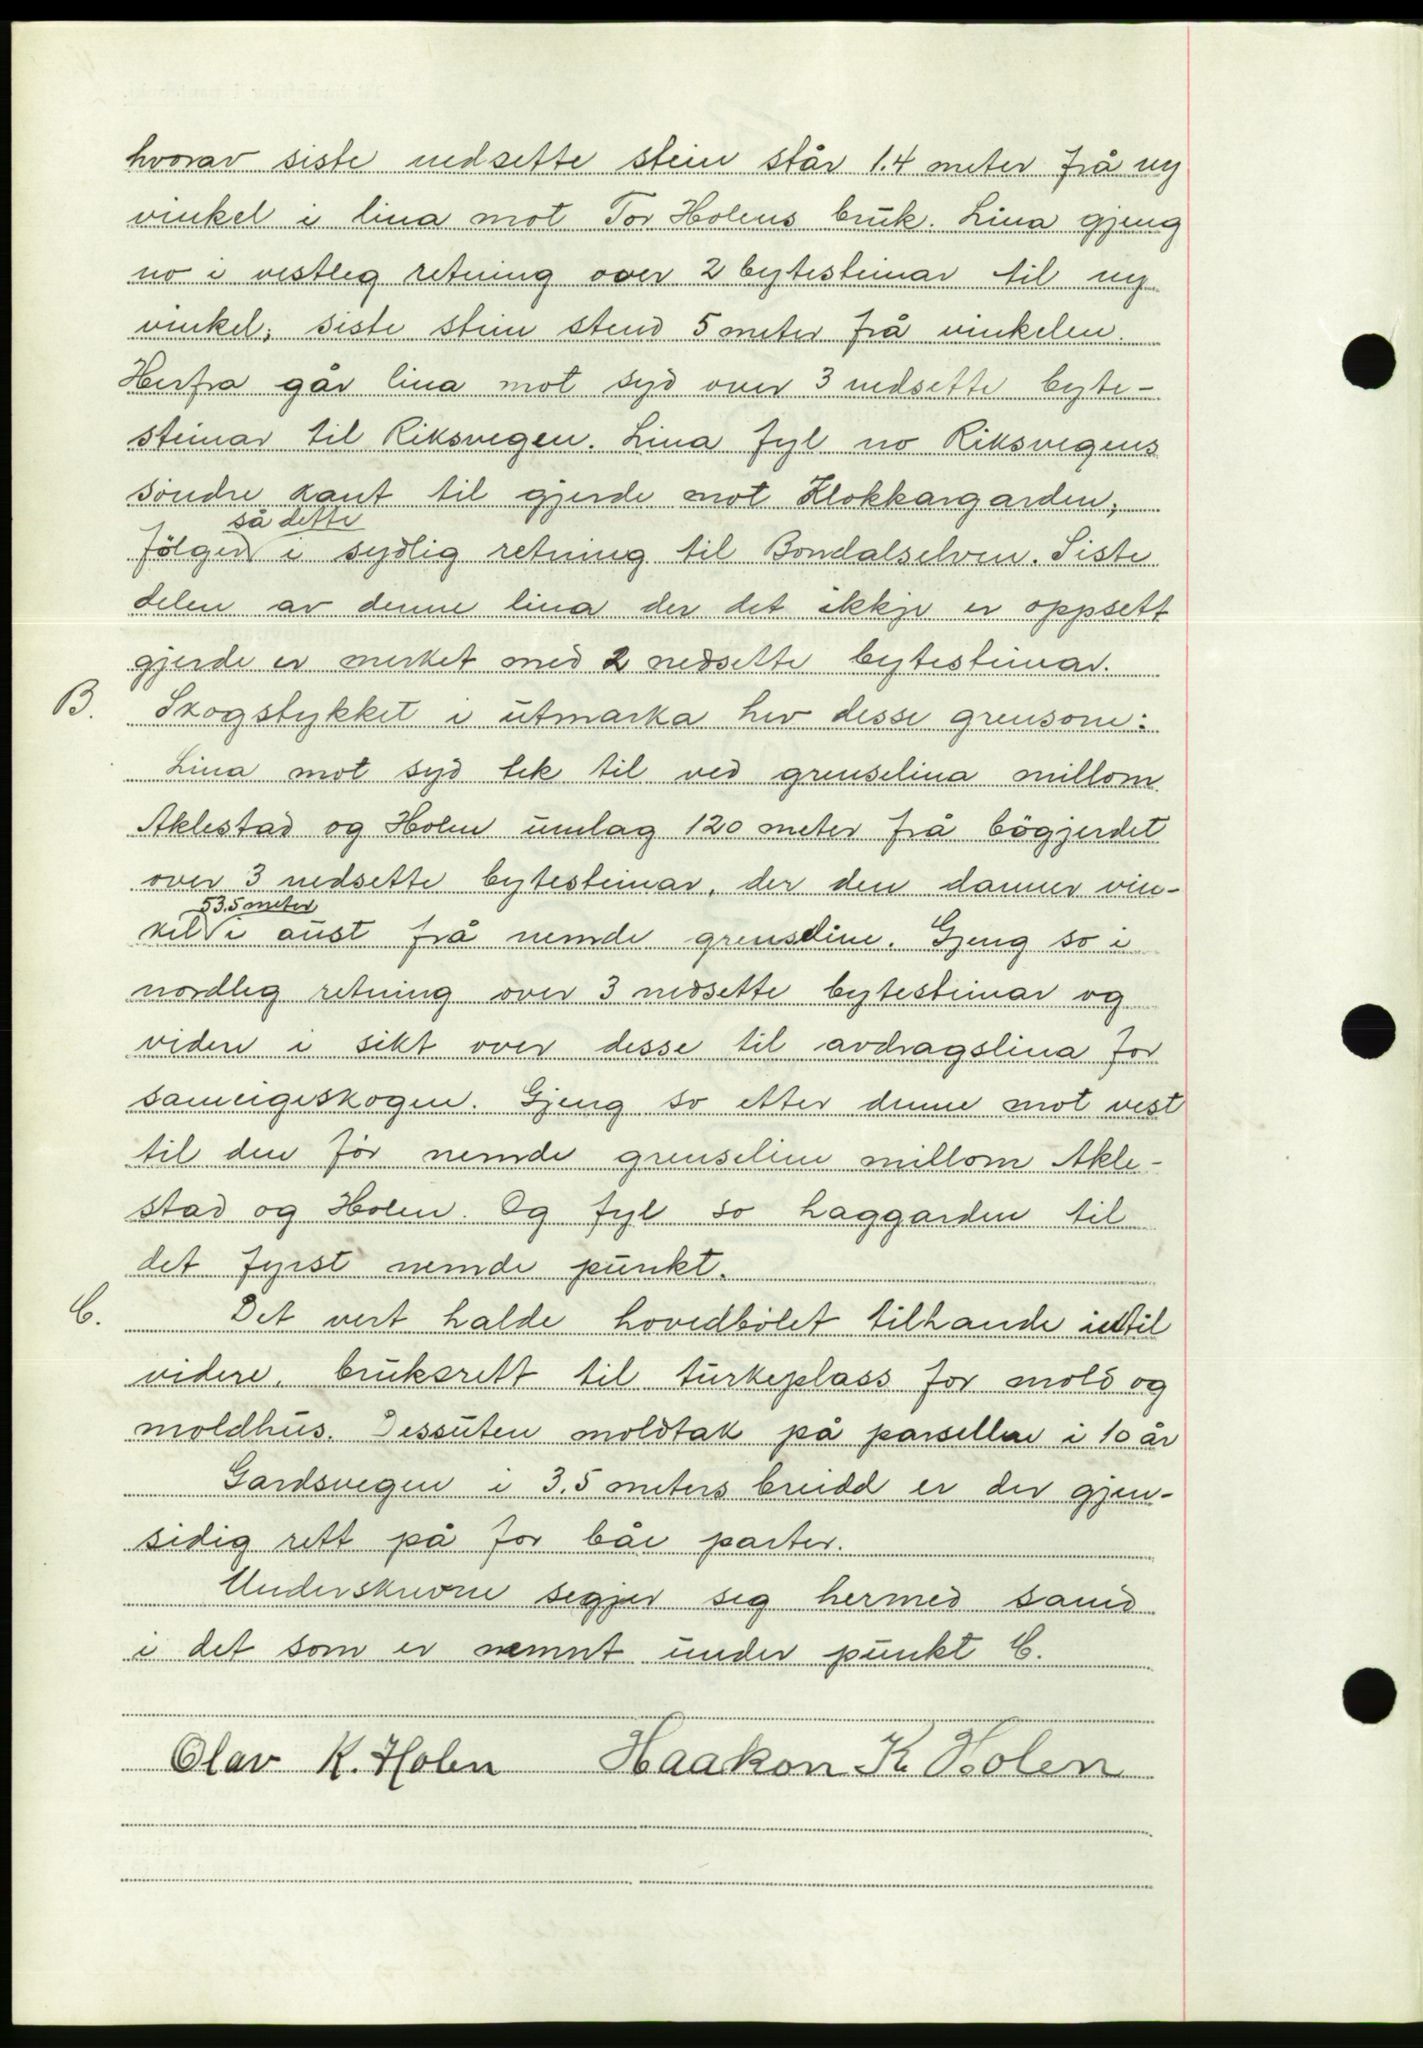 hvorav siste nedsette stein står 1.4 meter frå ny
vinkel i lina mot Tor Holens bruk. Lina gjeng
no i vestleg retning over 2 bytesteinar til ny
vinkel; siste stein stend 5 meter frå vinkelen.
Herfra går lina mot syd over 3 nedsette byte-
steinar til Riksvegen. Lina fyl no Riksvegens
söndre kant til gjerde mot Klokkargarden;
så dette
fölger i sydlig retning til Bondalselven. Siste
delen av denne lina der det ikkje er oppsett
gjerde er merket med 2 nedsette bytesteinar.
B. Skogstykket i utmarka hev desse grensone:
Lina mot syd tek til ved grenselina millom
Aklestad og Holen umlag 120 meter frå bögjerdet
over 3 nedsette bytesteinar, der den danner vin-
53.5 meter
kel i aust frå nemde grenseline. Gjeng so i
nordleg retning over 3 nedsette bytesteinar og
videre i sikt over desse til avdragslina for
sameigeskogen. Gjeng so etter denne mot vest
til den för nemde grenseline millom Akle-
stad og Holen. Og fyl so haggarden til
det fyrst nemde punkt.
C. Det vert halde hovedbölet tilhande inntil
videre, bruksrett til turkeplass for mold og
moldhus. Dessuten moldtak på parsellen i 10 år
Gardsvegen i 3.5 meters breidd er der gjen-
sidig rett på for båe parter.
Underskrevne segjer seg hermed samd
i det som er nemnt under punkt C.
Olav K. Holen Haakon K. Holen